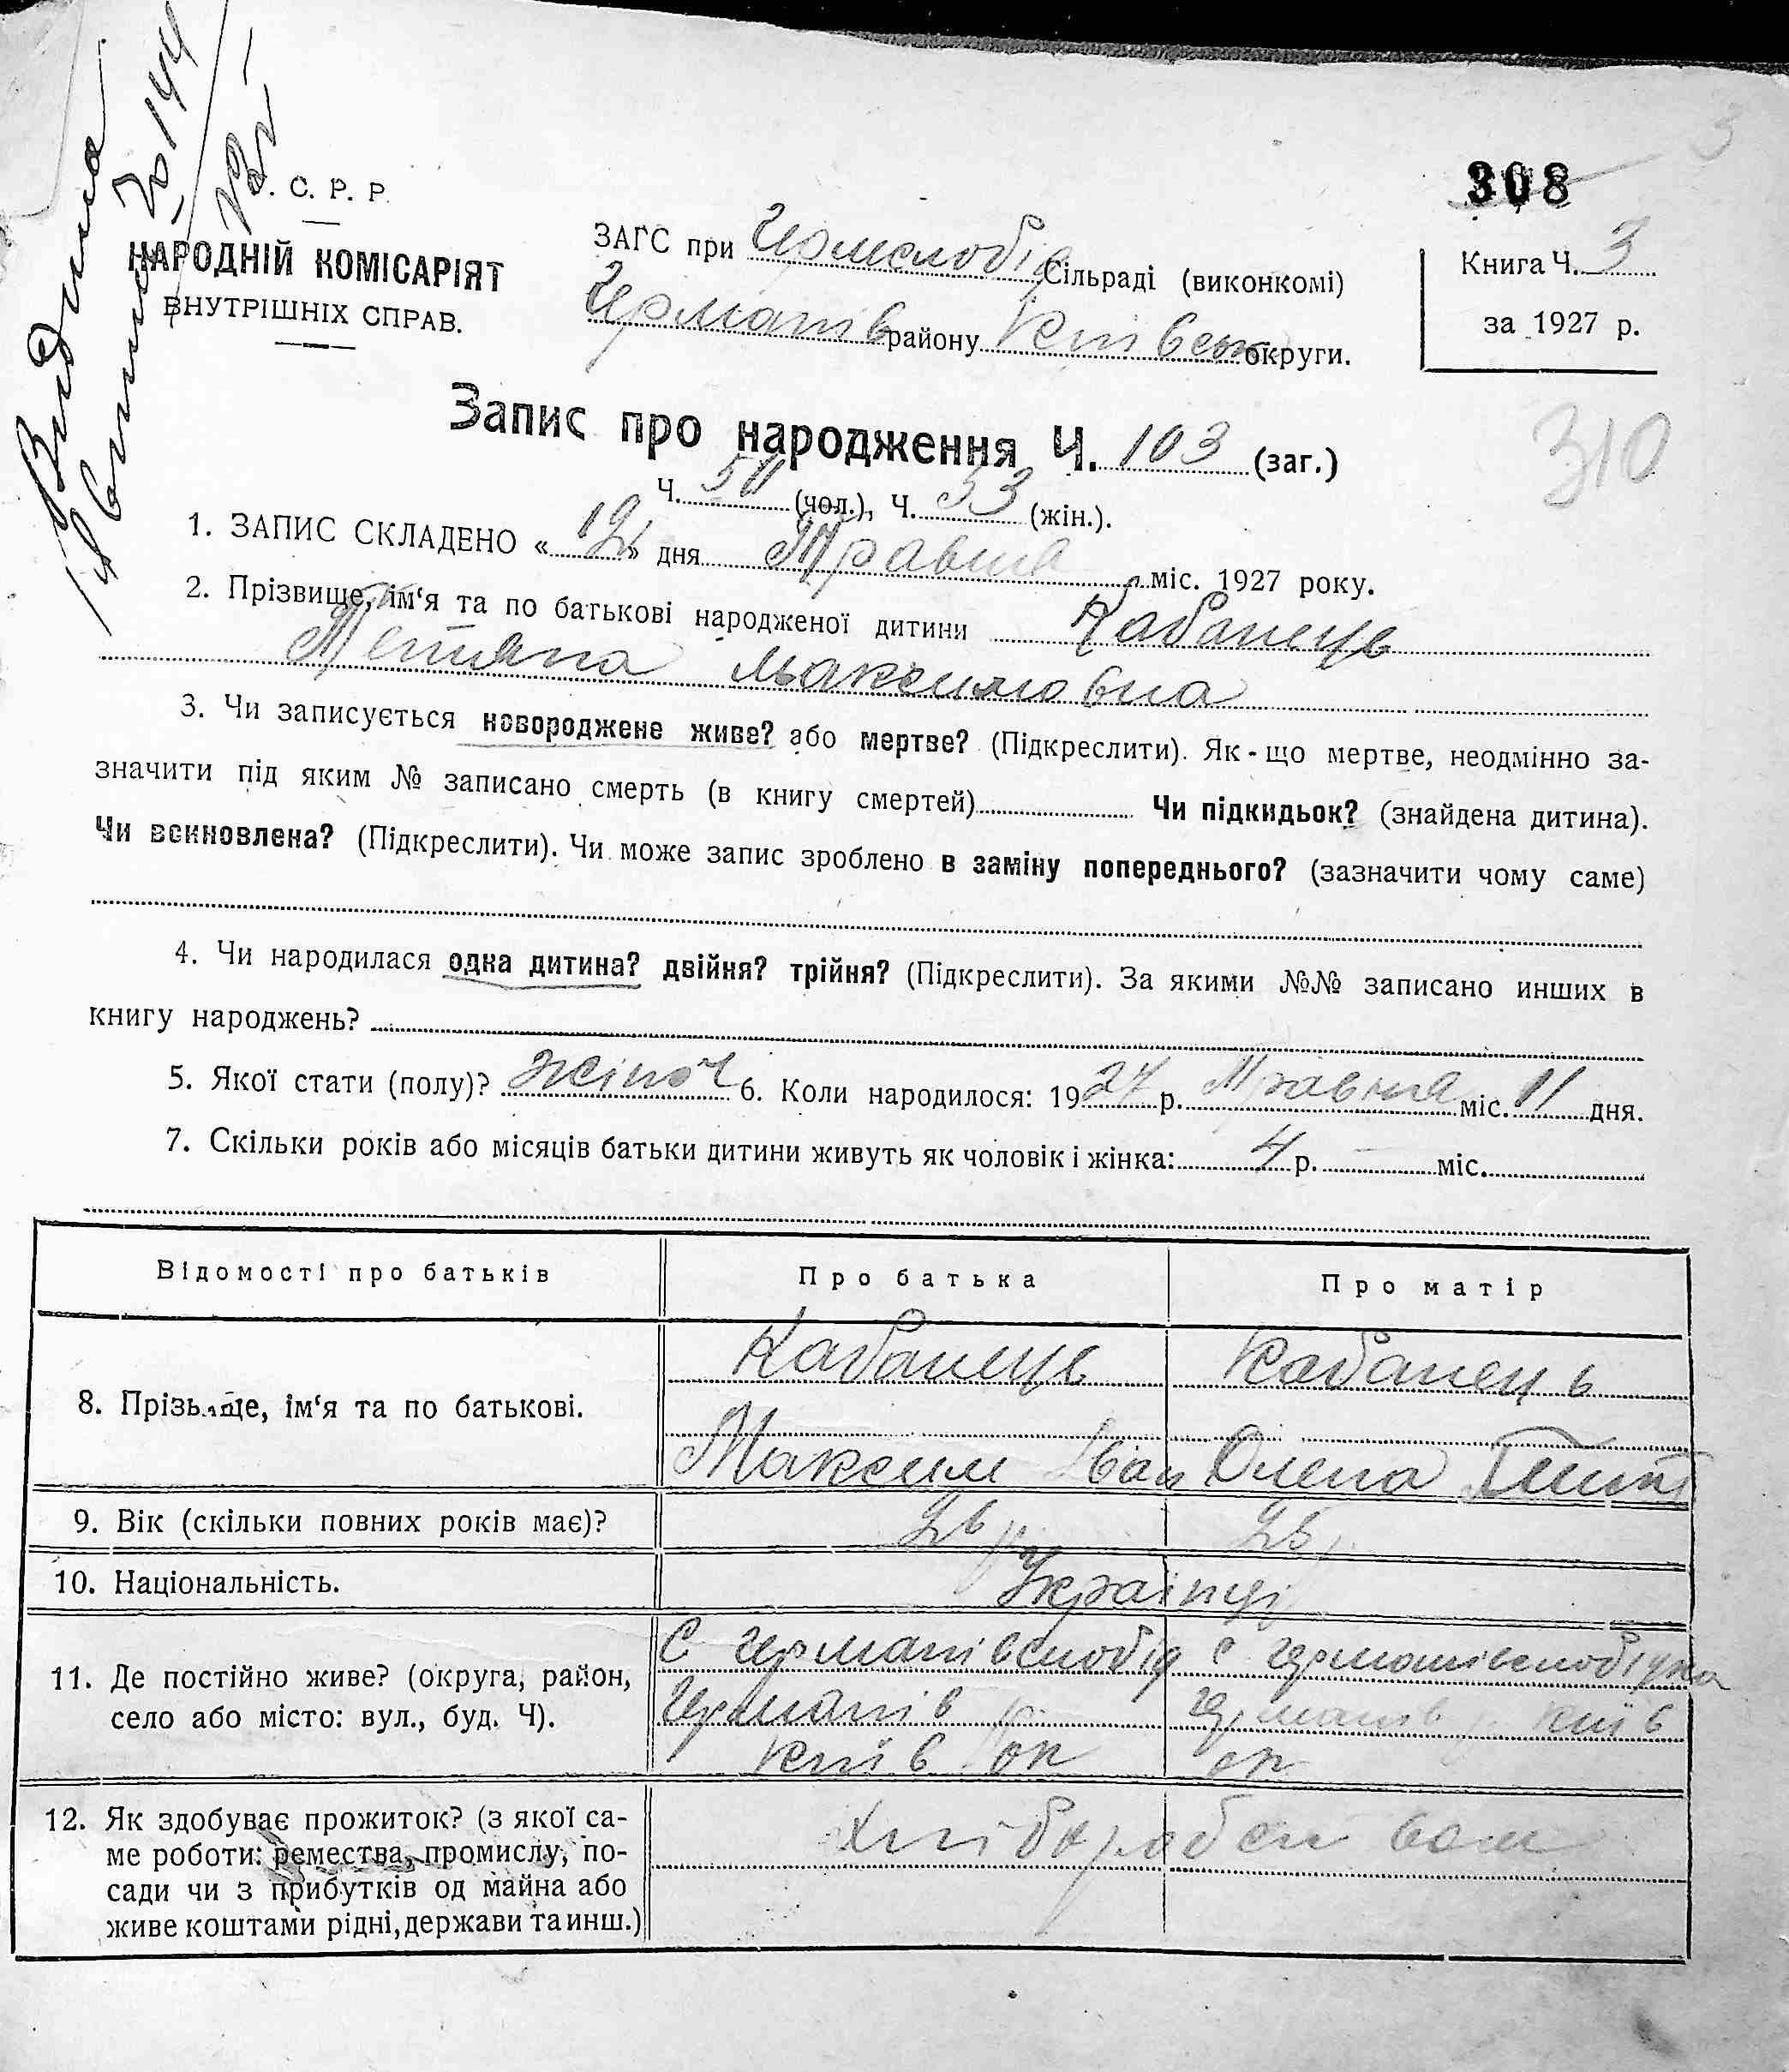 Видана
№ 144
308
3
. С. Р. Р.
НАРОДНІЙ КОМІСАРІЯТ
ВНУТРІШНІХ СПРАВ.
ЗАГС при Гермслобід Сільраді (виконкомі)
Германів району Київськ округи.
Книга Ч. 3
за 1927 р.
310
Запис про народження Ч. 103 (заг.)
Ч. 50 (чол.), Ч. 53 (жін.).
1. ЗАПИС СКЛАДЕНО « 12 » дня Травня міс. 1927 року.
2. Прізвище, ім‘я та по батькові народженої дитини Кабанець
Тетяна Максимовна
3. Чи записується новороджене живе? або мертве? (Підкреслити). Як-що мертве, неодмінно за-
значити під яким № записано смерть (в книгу смертей) Чи підкидьок? (знайдена дитина).
Чи всиновлена? (Підкреслити). Чи може запис зроблено в заміну попереднього? (зазначити чому саме)
4. Чи народилася одна дитина? двійня? трійня? (Підкреслити). За якими №№ записано инших в
книгу народжень?
5. Якої стати (полу)? жіноч 6. Коли народилося: 1927 р. Травня міс. 11 дня.
7. Скільки років або місяців батьки дитини живуть як чоловік і жінка: 4 р. — міс.
Відомості про батьків Про батька Про матір
8. Прізвище, ім‘я та по батькові. Кабанець Кабанець
Максим Іван Олена
9. Вік (скільки повних років має)? 26 р. 25 р.
10. Національність. Українці
11. Де постійно живе? (округа, район, С Германівслобід с Германівслобідка
село або місто: вул., буд. Ч). Германів р. Германів р. Київ
Київ ок ок
12. Як здобуває прожиток? (з якої са- Хліборобством
ме роботи: ремества, промислу, по-
сади чи з прибутків од майна або
живе коштами рідні, держави та инш.)